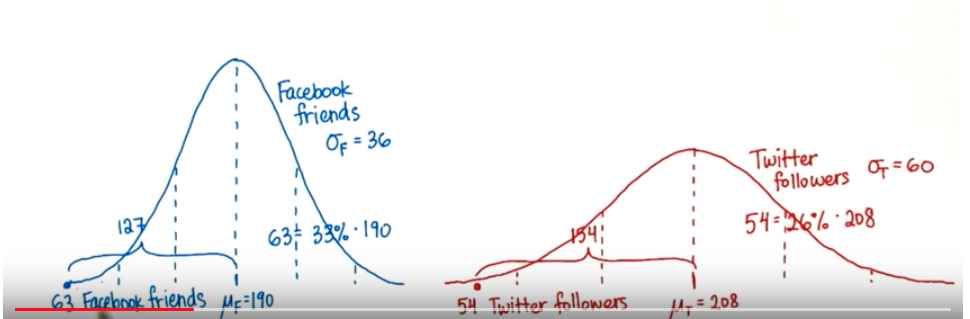 Facebook
friends
σF = 36
127
63 = 33% · 190
63 Facebook friends
μF = 190
Twitter
followers
σT = 60
154
54 = 26% · 208
54 Twitter followers
μT = 208